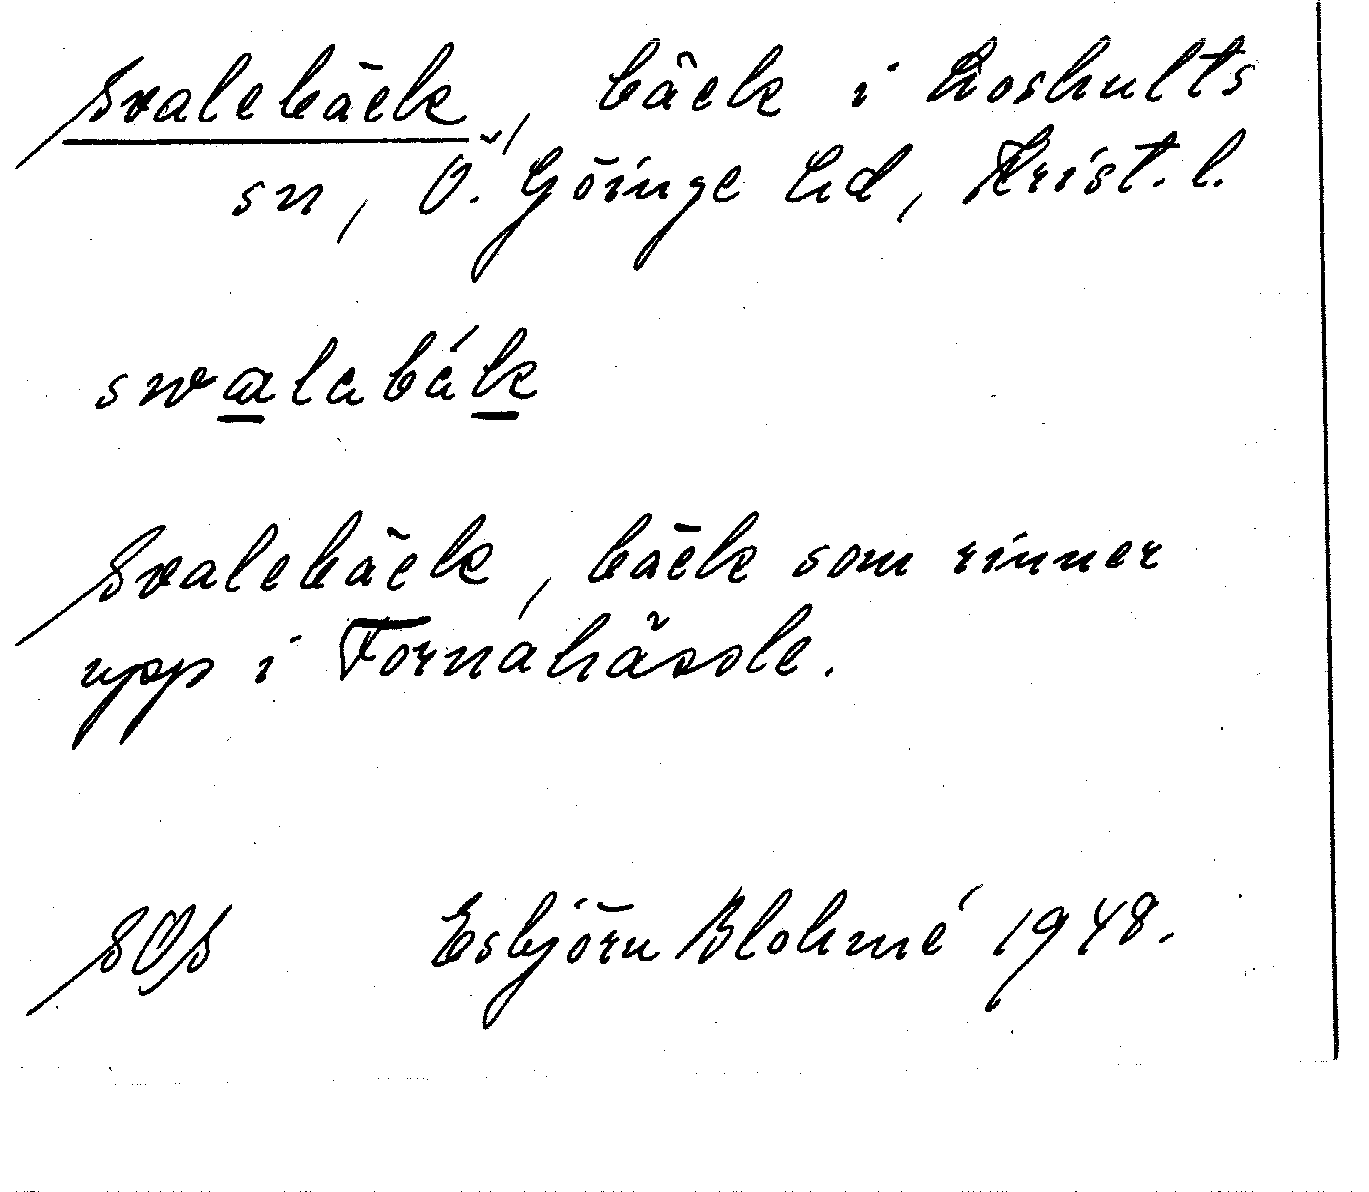 Svalebäck, bäck i Loshults
sn, Ö. Göinge hd, Krist. l.
swalabák
Svalebäck, bäck som rinner
upp i Fornahässle.
SOS Esbjörn Blohmé 1948.